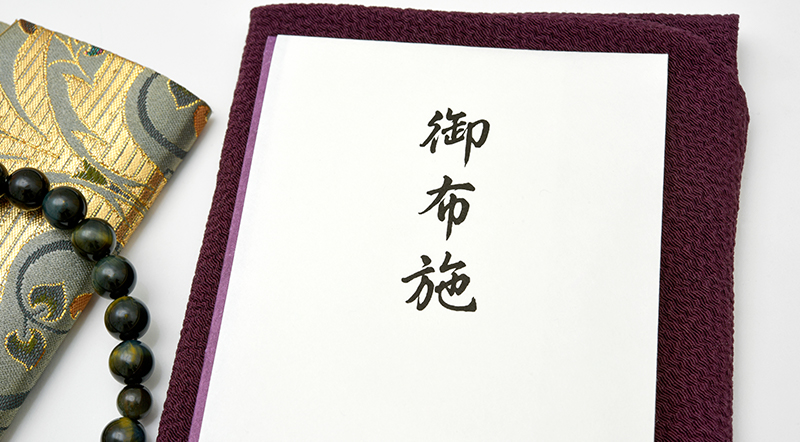 御布施